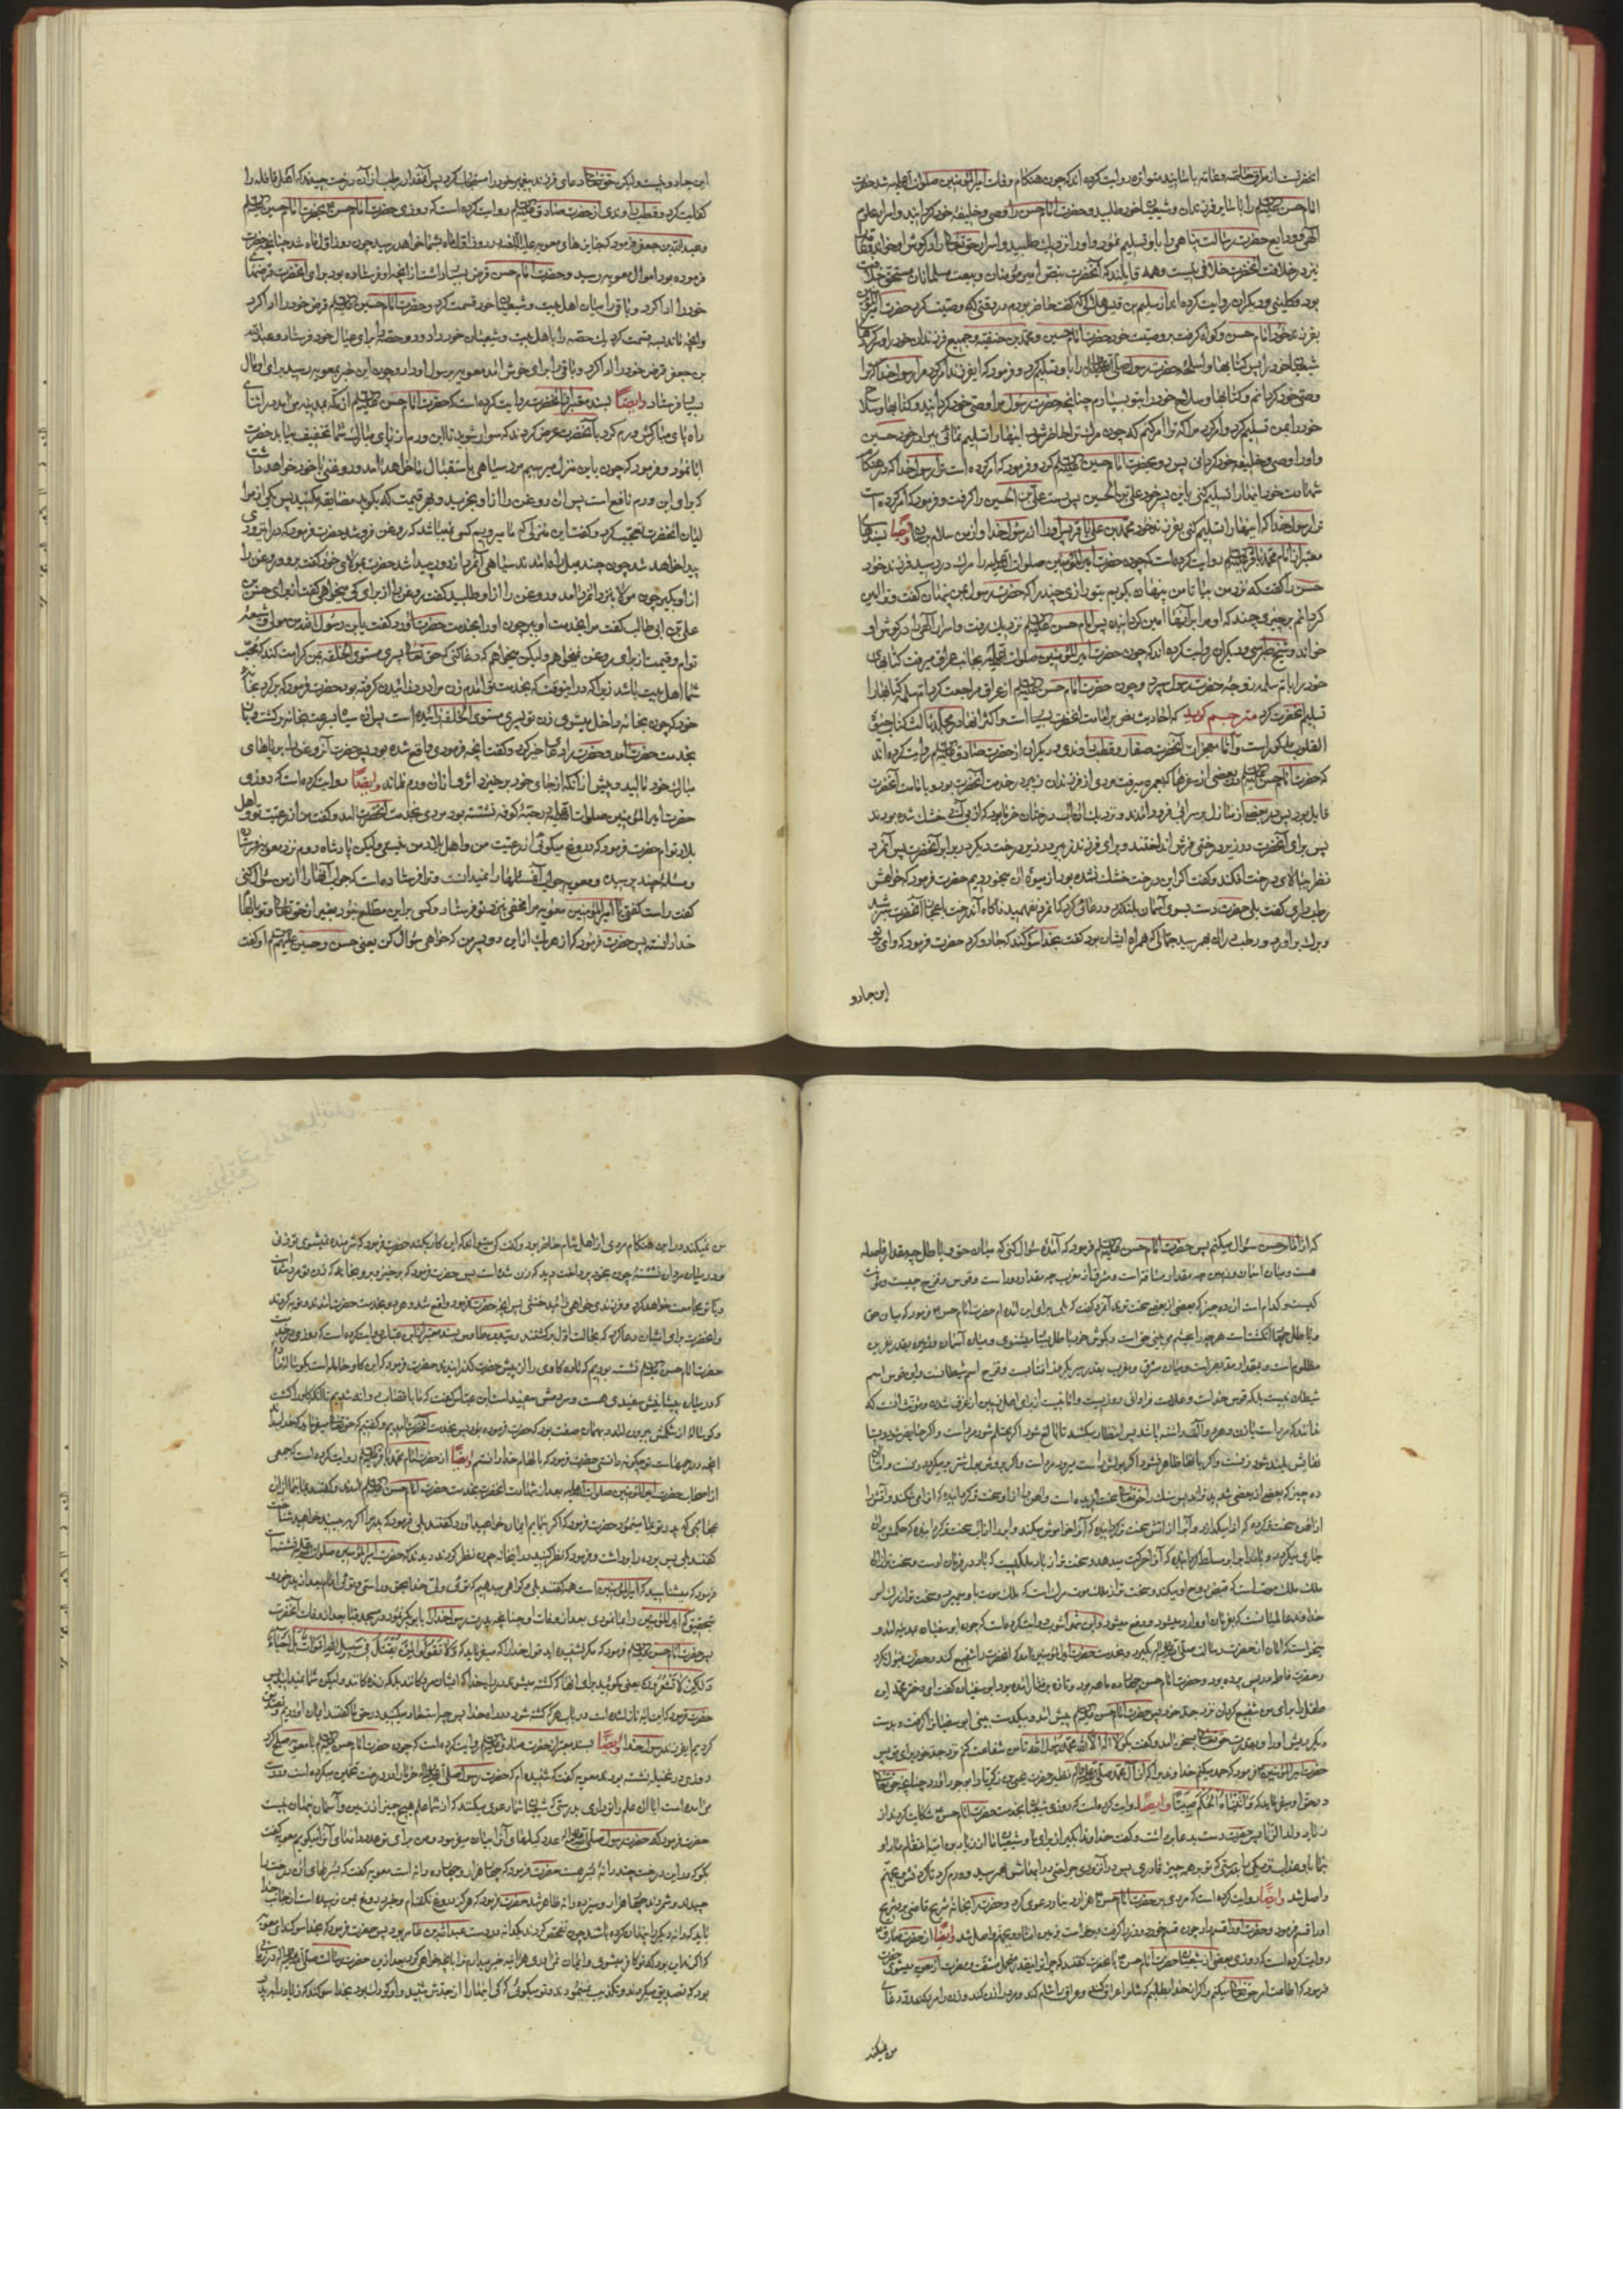 آنحضرتست از طرق خاصه و عامه باسانید متواتره روایت کرده اند که چون هنگام وفات امیرالمؤمنین صلوات الله علیه شد حضرت
امام حسن علیه السلام را با سایر فرزندان و شیعیان خود طلبید و حضرت امام حسن را وصی و خلیفه خود گردانید و اسرار علوم
الهی و ودایع حضرت رسالت پناهی را باو تسلیم نمود و او را نزدیک طلبید و اسرار حق تعالی را در گوش او خواند
نیز در خلافت آنحضرت خلافی نیست و همه قایلند که آنحضرت بنص امیر مؤمنان و بیعت مسلمانان مستحق خلافت
بود و کلینی و دیگران روایت کرده اند از سلیم بن قیس هلالی که گفت حاضر بودم در وقتی که وصیت کرد حضرت امیرالمؤمنین
بفرزند خود امام حسن و گواه گرفت بر وصیت خود حضرت امام حسین و محمد بن حنفیه و جمیع فرزندان خود را و سرکردهای
شیعیان خود را پس کتابها و اسلحه حضرت رسول صلی الله علیه و آله را باو تسلیم کرد و فرمود که ای فرزند امر کرد مرا رسول خدا که ترا
وصی خود گردانم و کتابها و سلاح خود را بتو بسپارم چنانچه حضرت رسول مرا وصی خود گردانید و کتابها و سلاح
خود را بمن تسلیم کرد و امر کرد مرا که ترا امر کنم که چون مرگ ترا حاضر شود اینها را تسلیم نمائی ببرادر خود حسین
شهادت خود اینها را تسلیم کنی باین پسر خود علی بن الحسین پس دست علی بن الحسین را گرفت و فرمود که امر کرده است
ترا رسول خدا که اینها را تسلیم کنی بفرزند خود محمد بن علی باقر پس او را از رسول خدا و از من سلام برسان و ایضا بسندهای
معتبر از امام محمد باقر علیه السلام روایت کرده است که چون حضرت امیرالمؤمنین صلوات الله علیه را مرگ در رسید فرزند خود
حسن را گفت که نزد من بیا تا من پنهان بگویم بتو رازی چند را که حضرت رسول بمن پنهان گفت و ترا امین
گردانم بر چیزی چند که او مرا بر آنها امین گردانیده پس امام حسن علیه السلام نزدیک رفت و اسرار الهی را در گوش او
خواند و شیخ طبرسی و دیگران روایت کرده اند که چون حضرت امیرالمؤمنین صلوات الله علیه بجانب عراق میرفت کتابهای
خود را بام سلمه زوجه حضرت رسول سپرد و چون حضرت امام حسن علیه السلام از عراق مراجعت کرد ام سلمه کتابها را
تسلیم آنحضرت کرد مترجم گوید که احادیث نص بر امامت آنحضرت بسیار است و اکثر آنها در مجلد ثالث کتاب حیوة
القلوب مذکور است و اما معجزات آنحضرت صفار و قطب راوندی و دیگران از حضرت صادق علیه السلام روایت کرده اند
که حضرت امام حسن علیه السلام در بعضی از سفرها که بعمره میرفت مردی از فرزندان زبیر در خدمت آنحضرت بود و بامامت آنحضرت
قایل بود پس در بعضی از منازل بر سر آبی فرود آمدند و نزدیک آن آب درختان خرما بود که از بی آبی خشک شده بودند
پس برای آنحضرت در زیر درختی فرش انداختند و برای فرزند زبیر در زیر درخت دیگر در برابر آنحضرت پس آنمرد
نظر ببالای درخت افکند و گفت اگر این درخت خشک نشده بود از میوه آن میخوردیم حضرت فرمود که خواهش
رطب داری گفت بلی حضرت دست بسوی آسمان بلند کرد و دعائی کرد که آنمرد نفهمید ناگاه آندرخت باعجاز آنحضرت سبز شد
و برگ برآورد و رطب در آن بهم رسید جمالی که همراه ایشان بود گفت بخدا سوگند که جادو کرد حضرت فرمود که وای بر تو
این جادو
این جادو نیست ولیکن حق تعالی دعای فرزند پیغمبر خود را مستجاب کرد پس آنقدر رطب از آن درخت چیدند که اهل قافله را
کفایت کرد و قطب راوندی از حضرت صادق علیه السلام روایت کرده است که روزی حضرت امام حسن بحضرت امام حسین علیه السلام
و عبدالله بن جعفر فرمود که جایزهای معویه در روز اول ماه بشما خواهد رسید چون روز اول ماه شد چنانچه حضرت
فرموده بود اموال معویه رسید و حضرت امام حسن قرض بسیار داشت از آنچه او فرستاده بود برای آنحضرت قرضهای
خود را ادا کرد و باقی را میان اهل بیت و شیعیان خود قسمت کرد و حضرت امام حسین علیه السلام قرض خود را ادا کرد
و آنچه ماند بسه قسمت کرد یک حصه را باهل بیت و شیعیان خود داد و دو حصه را برای عیال خود فرستاد و عبدالله
بن جعفر قرض خود را ادا کرد و باقی را برای خوش آمد معویه برسول او داد و چون این خبر بمعویه رسید برای او مال
بسیار فرستاد و ایضا بسند معتبر از آنحضرت روایت کرده است که حضرت امام حسن علیه السلام از مکه بمدینه میآمد در اثنای
راه پای مبارکش ورم کرد بآنحضرت عرض کردند که سوار شوید تا این ورم از پای مبارک شما تخفیف بیابد حضرت
ابا نمود و فرمود که چون باین منزل میرسیم مرد سیاهی باستقبال ما خواهد آمد و روغنی با خود خواهد داشت
که برای این ورم نافع است پس آن روغن را از او بخرید و بهر قیمت که بگوید مضایقه مکنید پس یکی از موا
لیان آنحضرت تعجب کرد و گفت این منزلی که ما میرویم کسی نمیباشد که روغن فروشد حضرت فرمود که در آنزودی
پیدا خواهد شد چون چند میل راه آمدند سیاهی آنمرد از دور پیدا شد حضرت بمولای خود گفت برو و روغن را
از او بگیر چون مولا بنزد آنمرد آمد و روغن را از او طلبید گفت روغن را از برای کی میخواهی گفت از برای حسن بن
علی بن ابی طالب گفت مرا بخدمت او ببر چون او را بخدمت حضرت آورد گفت یابن رسول الله من مولی و شیعه
توام و قیمت از برای روغن نمیخواهم ولیکن میخواهم که دعا کنی که حق تعالی پسری مستوی الخلقه بمن کرامت کند که محب
شما اهل بیت باشد زیرا که در این وقت که بخدمت تو آمدم زن مرا درد زائیدن گرفته بود حضرت فرمود که برگرد بخانه
خود که چون بخانه داخل میشوی زن تو پسری مستوی الخلقه زائیده است پس آن سیاه بسرعت بخانه برگشت و باز
بخدمت حضرت آمد و حضرت را دعای خیر کرد و گفت آنچه فرمودی واقع شده بود پس حضرت آن روغن را بر پاهای
مبارک خود مالید و پیش از آنکه از جای خود برخیزد اثری از آن ورم نماند و ایضا روایت کرده است که روزی
حضرت امیرالمؤمنین صلوات الله علیه در رحبه کوفه نشسته بود مردی بخدمت آنحضرت آمد و گفت من از رعیت تو و اهل
بلاد توام حضرت فرمود که دروغ میگوئی از رعیت من و اهل بلاد من نیستی ولیکن پادشاه روم نزد معویه فرستاد
و مسئله چند پرسید و معویه جواب آن مسئلها را نمیدانست و ترا فرستاده است که جواب آنها را از من سؤال کنی
گفت راست گفتی یا امیرالمؤمنین معویه مرا مخفی بنزد تو فرستاد و کسی بر این مطلع نبود بغیر از حق تعالی
خدا دانسته پس حضرت فرمود که از هر یک از این دو پسر من که خواهی سؤال کن یعنی حسن و حسین علیهم السلام او گفت
که از امام حسن سؤال میکنم پس حضرت امام حسن علیه السلام فرمود که آمدۀ سؤال کنی که میان حق و باطل چه مقدار فاصله
هست و میان آسمان و زمین چه مقدار مسافت است و مشرق از مغرب چه مقدار دور است و قوس و قزح چیست و مؤنث
کیست و کدام است آن ده چیز که بعضی از بعضی سخت ترند آنمرد گفت که بلی برای این آمده ام حضرت امام حسن فرمود که میان حق
و باطل چهار انگشت است هر چه را بچشم می بینی حق است و بگوش خود باطل بسیار میشنوی و میان آسمان و زمین بقدر نفرین
مظلوم است و بمقدار مد بصر است و میان مشرق و مغرب بقدر سیر یکروز آفتابست و قزح اسم شیطانست و این قوس اسم
شیطان نیست بلکه قوس خداست و علامت فراوانی روزیست و امانیست از برای اهل زمین از غرق شدن و مؤنث آنست که
ندانند که مرد است یا زن و هر دو آلت داشته باشد پس انتظار میکشند تا بالغ شود اگر محتلم شود مرد است و اگر حایض شود و پستا
نهایش بلند شود زنست و اگر باینها ظاهر نشود اگر بولش راست میرود مرد است و اگر بروش بول شتر برمیگردد زنست و اما آن
ده چیز که بعضی از بعضی شدیدترند پس سنگ را حق تعالی سخت آفریده است و آهن را از او سخت تر گردانیده که او را می شکند و آتش را
از آهن سخت تر کرده که او را میگدازد و آب را از آتش سخت تر گردانیده که آنرا خاموش میکند و ابر را از آب سخت تر گردانیده که حکمش بر آن
جاری میگردد و باد را بر ابر مسلط گردانیده که آنرا حرکت میدهد و سخت تر از باد ملکیست که باد در فرمان اوست و سخت تر از آن
ملک ملک موتست که قبض روح او میکند و سخت تر از ملک موت مرگ است که ملک موت باو میمیرد و سخت تر از مرگ امر
خداوند عالمیانست که بفرمان او وارد میشود و دفع میشود و ابن شهر آشوب روایت کرده است که چون ابو سفیان بمدینه آمد و
میخواست که امان از حضرت رسالت صلی الله علیه و آله بگیرد و بخدمت حضرت امیرالمؤمنین آمد که آنحضرت را شفیع کند و حضرت قبول نکرد
و حضرت فاطمه در پس پرده بود و حضرت امام حسن چهارده ماهه بود و تازه برفتار آمده بود ابو سفیان گفت ای دختر محمد این
طفل را برای من شفیع گردان نزد جد خود پس حضرت امام حسن علیه السلام پیش آمد و بیکدست بینی ابو سفیان را گرفت و بدست
دیگر ریش او را و بقدرت حق تعالی بسخن آمد و گفت بگو لا اله الا الله محمد رسول الله تا من شفاعت کنم نزد جد خود برای تو پس
حضرت امیرالمؤمنین فرمود که حمد میکنم خداوندی را که از آل محمد صلی الله علیه و آله نظیر حضرت یحیی بن زکریا را بوجود آورد چنانچه حق تعالی
در حق او میفرماید که وَآتَيْنَاهُ الْحُكْمَ صَبِيًّا و ایضا روایت کرده است که روزی شیعیان بخدمت حضرت امام حسن شکایت کردند از
زیاد ولد الزنا پس حضرت دست بدعا برداشت و گفت خداوندا بگیر از برای ما و شیعیان ما از زیاد بن ابیه انتقام ما را و
بنما بما عذاب نزدیکی را بدرستی که تو بر همه چیز قادری پس در آنزودی جراحتی در ابهامش بهم رسید و ورم کرد تا گردنش بجهنم
واصل شد و ایضا روایت کرده است که مردی بر حضرت امام حسن هزار دینار دعوی کرد و حضرت را بخانه شریح قاضی برد شریح
روایت کرده است که روزی بعضی از شیعیان حضرت امام حسن بآنحضرت گفتند که چرا تو اینقدر تحمل مشقت و مضرت از معویه مینمائی حضرت
فرمود که اطاعت امر حق تعالی میکنم و اگر از خدا بطلبم که شام را عراق کند و عراق را شام کند و مرد را زن کند و زن را مرد کند رد دعای
من نمیکند
من نمیکند در این هنگام مردی از اهل شام حاضر بود و گفت کی میتواند که این کار بکند حضرت فرمود که شرمنده نمیشوی تو زنی
و در میان مردان نشستۀ چون بخود پرداخت دید که زن شده است پس حضرت فرمود که برخیز و برو بخانه که زن تو مرد شده است
و با تو مجامعت خواهد کرد و فرزندی خواهی زائید خنثی پس آنچه حضرت فرمود واقع شد و هر دو بخدمت حضرت آمدند و توبه کردند
و آنحضرت برای ایشان دعا کرد که بحالت اول برگشتند و سید بن طاوس بسند معتبر از ابن عباس روایت کرده است که روزی در خدمت
حضرت امام حسن علیه السلام نشسته بودیم که ماده گاوی را از پیش حضرت گذرانیدند حضرت فرمود که این گاو حامله است بگوساله مادۀ
که در میان پیشانیش سفیدی هست و سر دمش سفید است ابن عباس گفت که ما با قصاب روانه شدیم تا آنکه گاو را کشت
و گوساله از شکمش بیرون آمد و بهمان صفت بود که حضرت فرموده بود پس بخدمت آنحضرت آمدیم و گفتیم که حق تعالی میفرماید که خدا میداند
آنچه در رحمهاست تو چگونه دانستی حضرت فرمود که ما بالهام خدا دانستیم و ایضا از حضرت امام محمد باقر علیه السلام روایت کرده است که جمعی
از اصحاب حضرت امیرالمؤمنین صلوات الله علیه بعد از شهادت آنحضرت بخدمت حضرت امام حسن علیه السلام آمدند و گفتند بنما بما از آن
عجایبی که پدر تو بما مینمود حضرت فرمود که اگر بنمایم ایمان خواهید آورد گفتند بلی فرمود که پدرم را اگر ببینید خواهید شناخت
گفتند بلی پس پرده را برداشت و فرمود که نظر کنید در این خانه چون نظر کردند دیدند که حضرت امیرالمؤمنین صلوات الله علیه نشسته است
فرمود که میشناسید که امیرالمؤمنین است همه گفتند بلی گواهی میدهیم که توئی ولی خدا بحق و راستی و توئی امام بعد از پدر خود و
بتحقیق که امیرالمؤمنین را بما نمودی بعد از وفات او چنانچه پدرت رسول خدا را بابی بکر نمود در مسجد قبا بعد از وفات آنحضرت
پس حضرت امام حسن علیه السلام فرمود که مگر نشنیده اید قول خدا را که میفرماید که وَلَا تَقُولُوا لِمَنْ يُقْتَلُ فِي سَبِيلِ اللَّهِ أَمْوَاتٌ بَلْ أَحْيَاءٌ
وَلَكِنْ لَا تَشْعُرُونَ یعنی مگوئید برای آنها که کشته میشوند در راه خدا که ایشان مردگانند بلکه زندگانند ولیکن شما نمیدانید پس
حضرت فرمود که این آیه نازل شده است در باب هر که کشته شود در راه خدا پس چرا استبعاد میکنید در حق ما گفتند ایمان آوردیم و تصدیق
کردیم ای فرزند رسول خدا و ایضا بسند معتبر از حضرت صادق علیه السلام روایت کرده است که چون حضرت امام حسن علیه السلام با معویه صلح کرد
روزی در نخیله نشسته بودند معویه گفت که شنیده ام که حضرت رسول صلی الله علیه و آله خرما را در درخت تخمین میکرده است و درست
میآمده است آیا از آن علم را تو داری بدرستی که شیعیان شما دعوی میکنند که از شما علم هیچ چیز از زمین و آسمان پنهان نیست
حضرت فرمود که حضرت رسول صلی الله علیه و آله عدد کیلهای آنرا بیان میفرمود و من برای تو عدد دانهای آنرا میگویم معویه گفت
بگو که در این درخت چند دانه بسر هست حضرت فرمود که چهار هزار و چهار دانه است معویه گفت که بسرهای آن درخت را